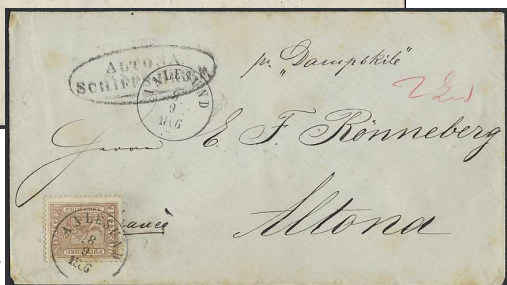 ALTONA
SCHIFF
AALESUND
9
1866
pr „Dampskib"
Herrn E. F. Rönneberg
Altona
AALESUND
18
9
1866